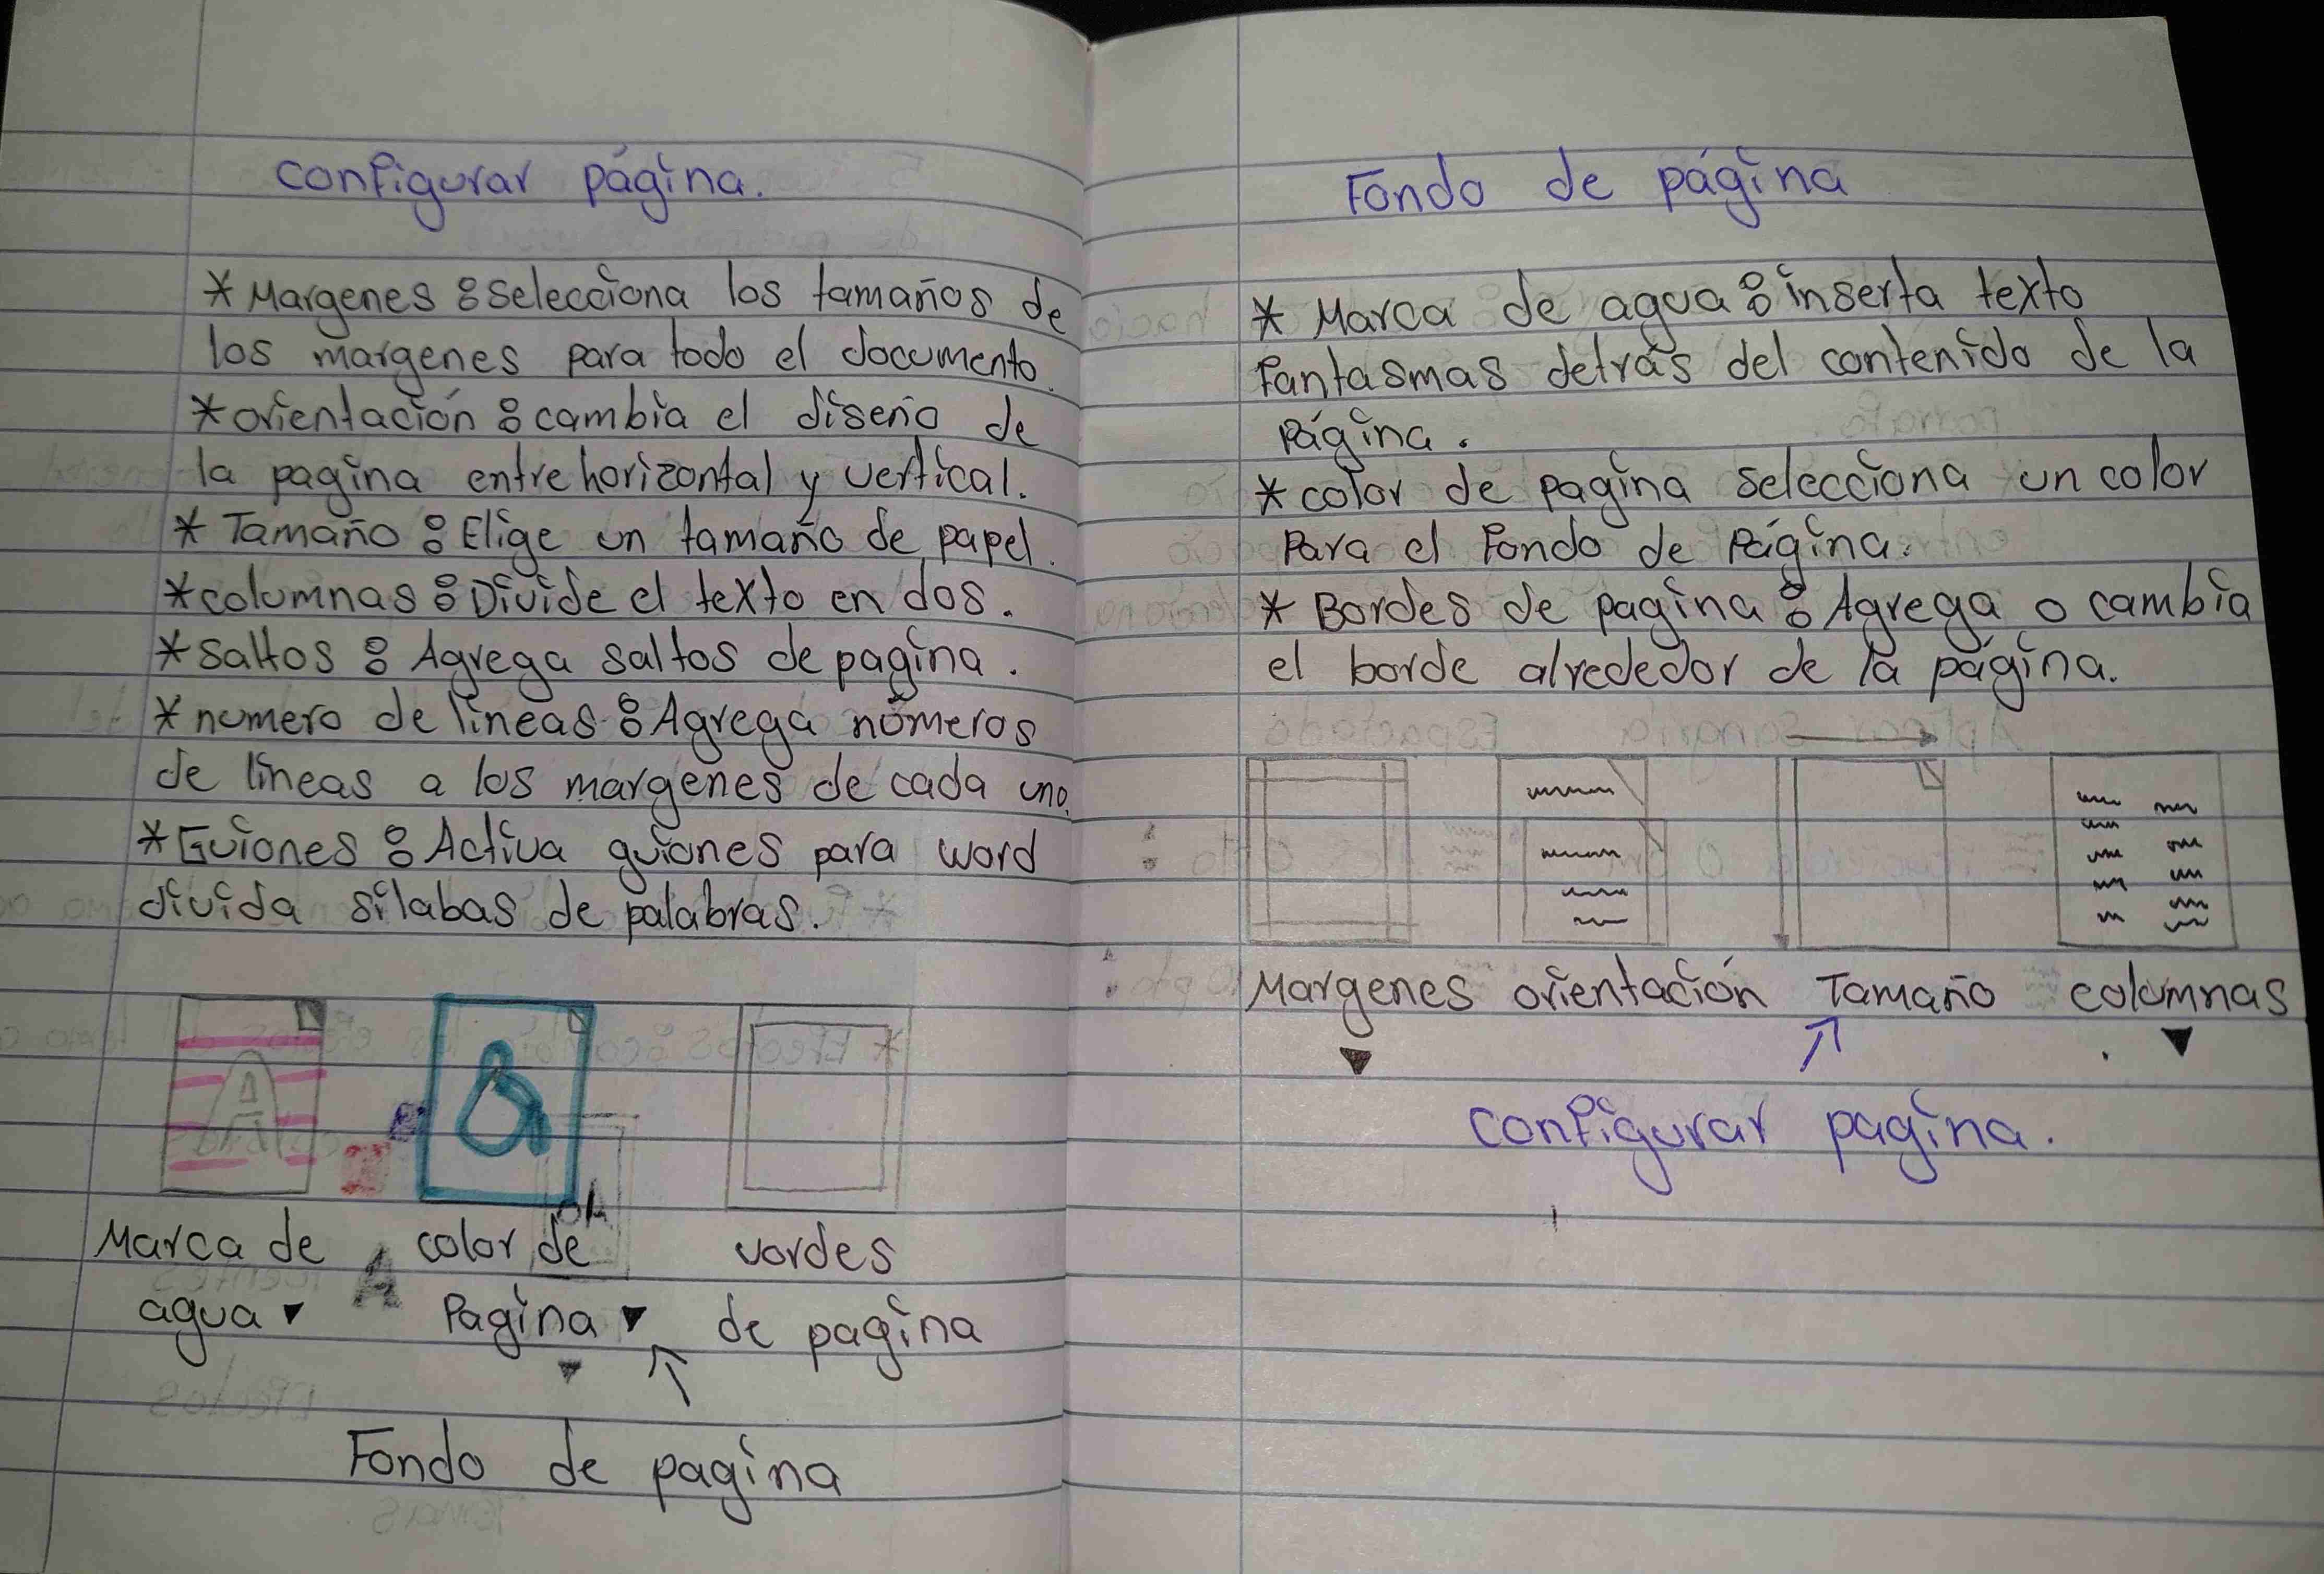 configurar página.
* Margenes : selecciona los tamaños de
los margenes para todo el documento.
* orientación : cambia el diseño de
la pagina entre horizontal y vertical.
* Tamaño : Elige un tamaño de papel.
* columnas : Divide el texto en dos.
* saltos : Agrega saltos de pagina.
* numero de lineas : Agrega números
de lineas a los margenes de cada uno.
* Guiones : Activa guiones para word
divida silabas de palabras.
A
Marca de
agua
A
color de
Pagina
vordes
de pagina
Fondo de pagina
Fondo de página
* Marca de agua : inserta texto
fantasmas detrás del contenido de la
Página.
* color de pagina selecciona un color
Para el Fondo de Página.
* Bordes de pagina : Agrega o cambia
el borde alrededor de la página.
Margenes orientación Tamaño columnas
configurar pagina.